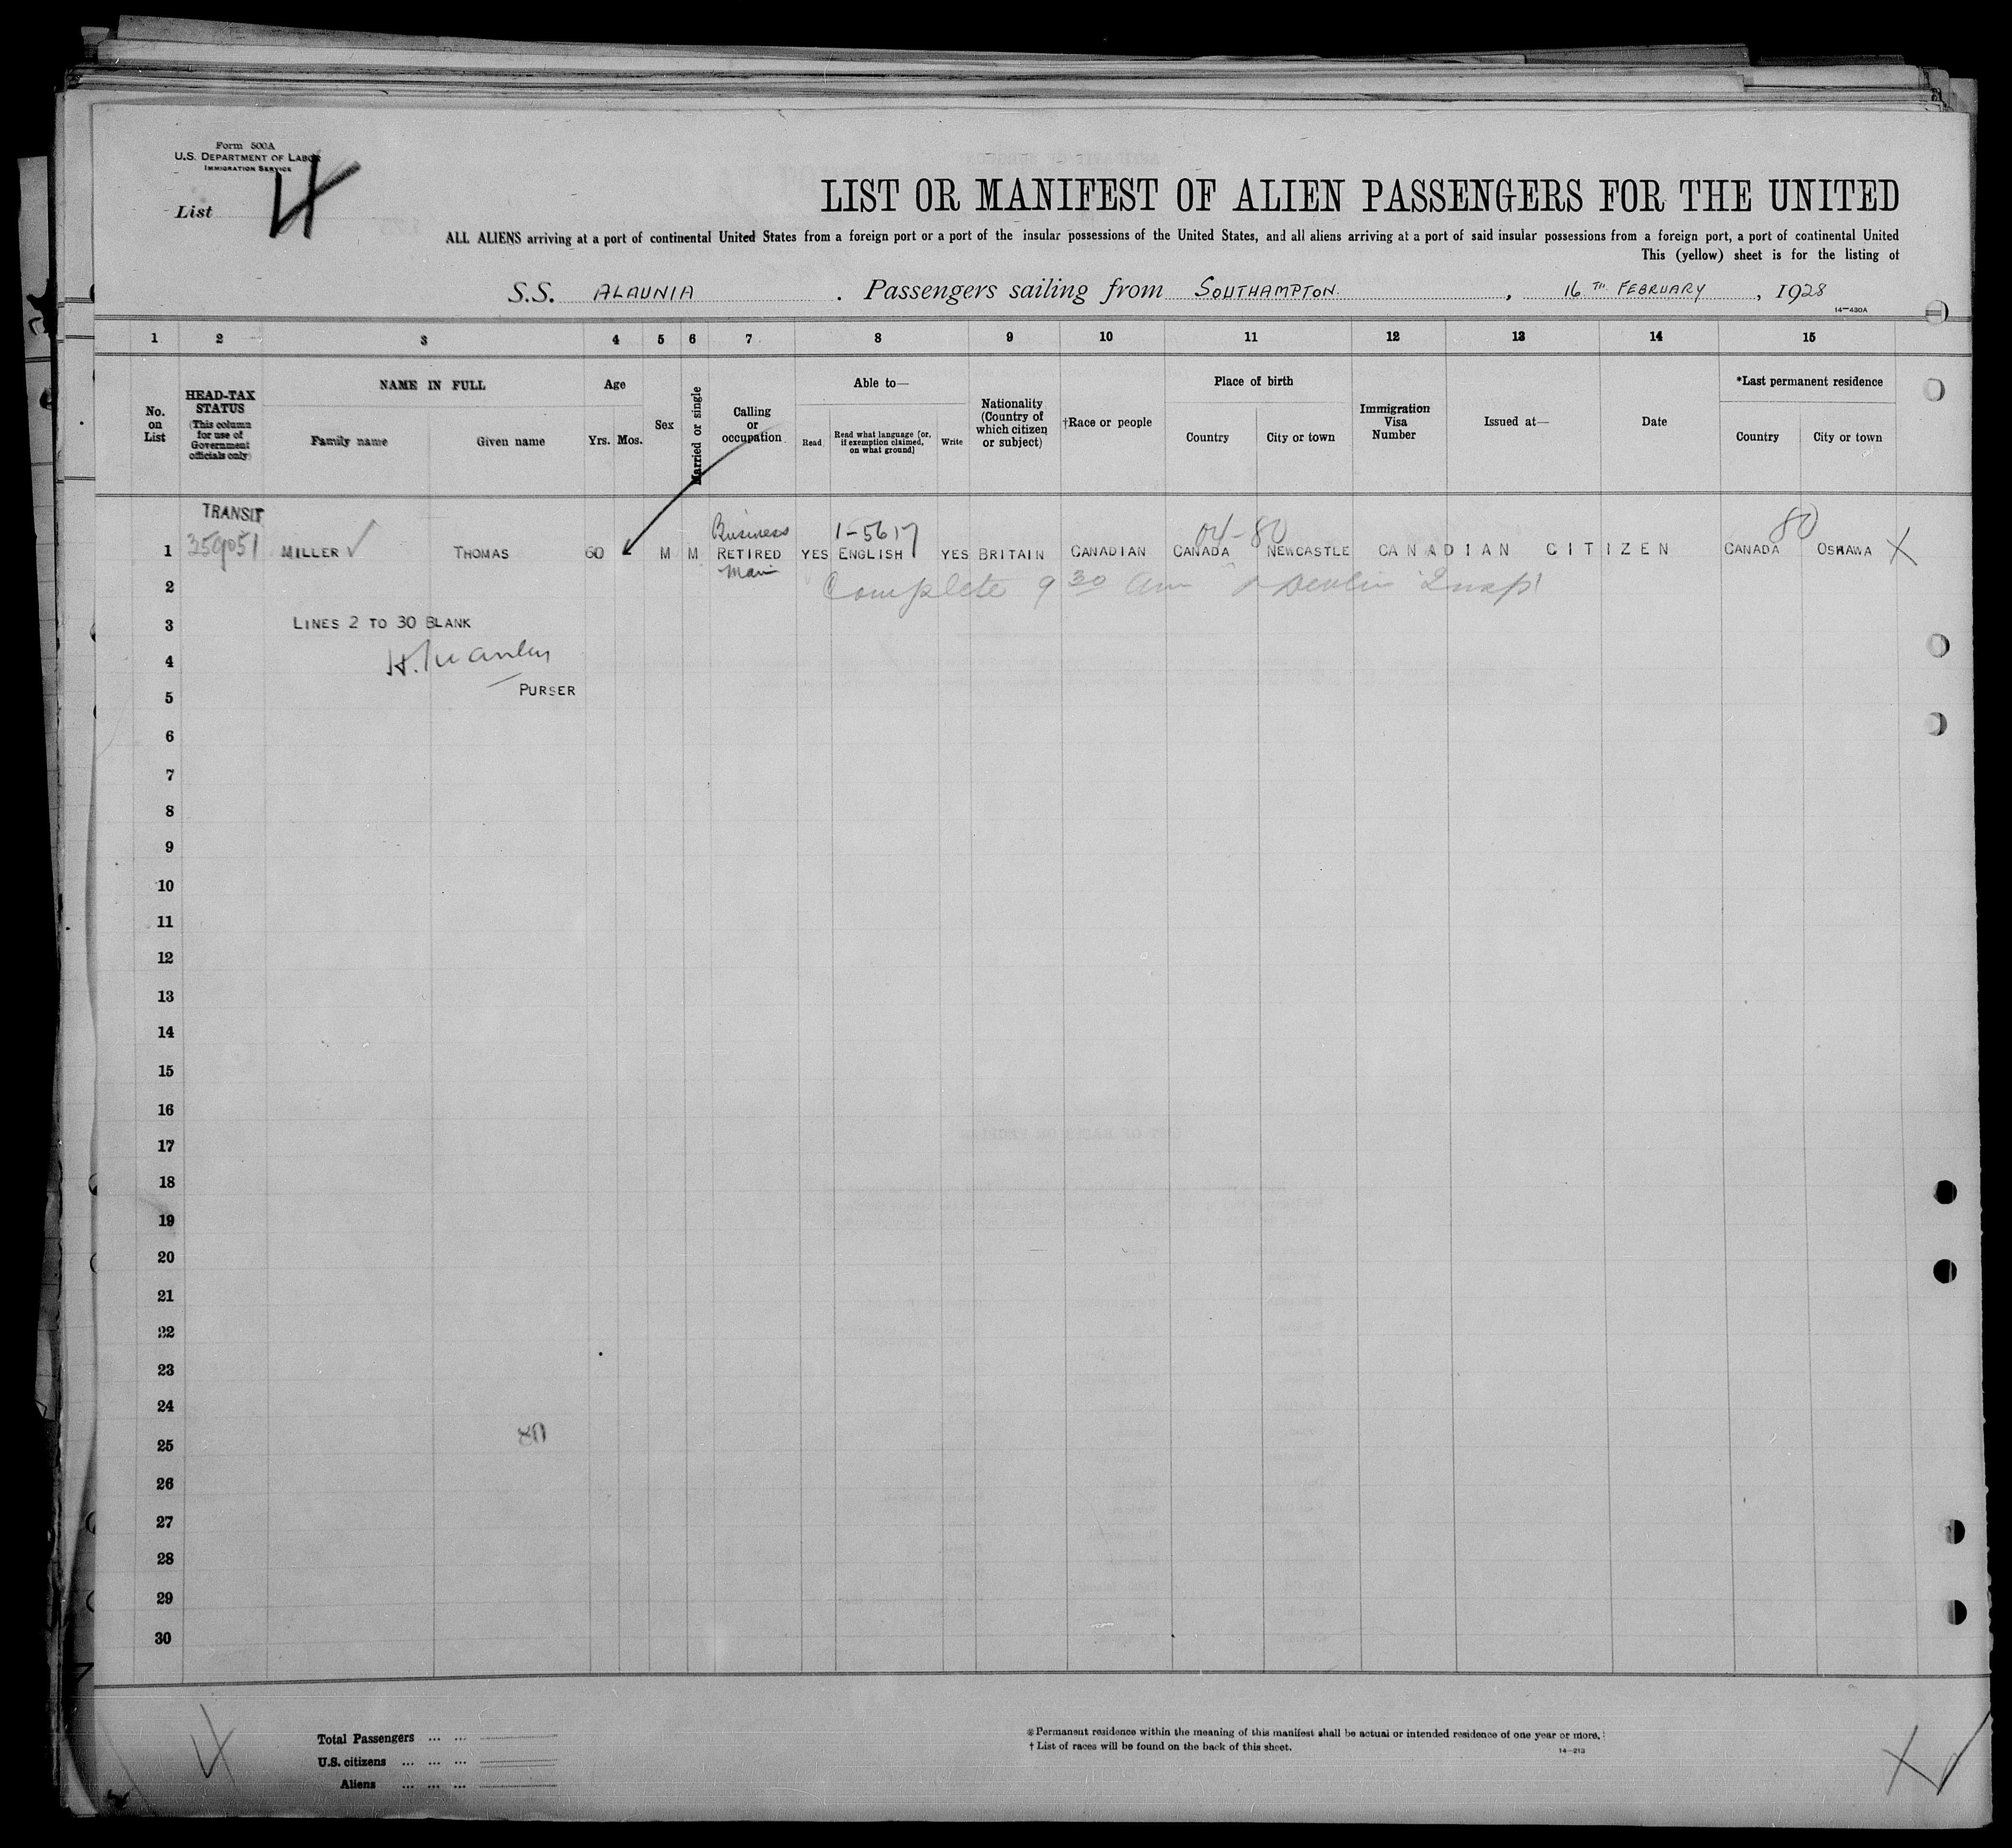 Form 500A
U.S. DEPARTMENT OF LABOR
IMMIGRATION SERVICE
List 4
LIST OR MANIFEST OF ALIEN PASSENGERS FOR THE UNITED
ALL ALIENS arriving at a port of continental United States from a foreign port or a port of the insular possessions of the United States, and all aliens arriving at a port of said insular possessions from a foreign port, a port of continental United
This (yellow) sheet is for the listing of
S.S. ALAUNIA . Passengers sailing from SOUTHAMPTON. , 16 TH FEBRUARY , 1928
14—430A
1 2 3 4 5 6 7 8 9 10 11 12 13 14 15
No. on List
HEAD-TAX STATUS (This column for use of Government officials only)
NAME IN FULL
Family name Given name
Age
Yrs. Mos.
Sex
Married or single
Calling or occupation
Able to—
Read Read what language [or, if exemption claimed, on what ground] Write
Nationality (Country of which citizen or subject)
†Race or people
Place of birth
Country City or town
Immigration Visa Number
Issued at—
Date
*Last permanent residence
Country City or town
TRANSIT Business 1-5617 04-80 80
1 359051 MILLER ✓ THOMAS 60 M M RETIRED YES ENGLISH YES BRITAIN CANADIAN CANADA NEWCASTLE CANADIAN CITIZEN CANADA OSHAWA X
Man
2 Complete 9 30 am
3 LINES 2 TO 30 BLANK
4 H. Manley
5 PURSER
6
7
8
9
10
11
12
13
14
15
16
17
18
19
20
21
22
23
24
25
26
27
28
29
30
Total Passengers ... ...
U.S. citizens ... ... ...
Aliens ... ... ...
* Permanent residence within the meaning of this manifest shall be actual or intended residence of one year or more.
† List of races will be found on the back of this sheet.
14—213